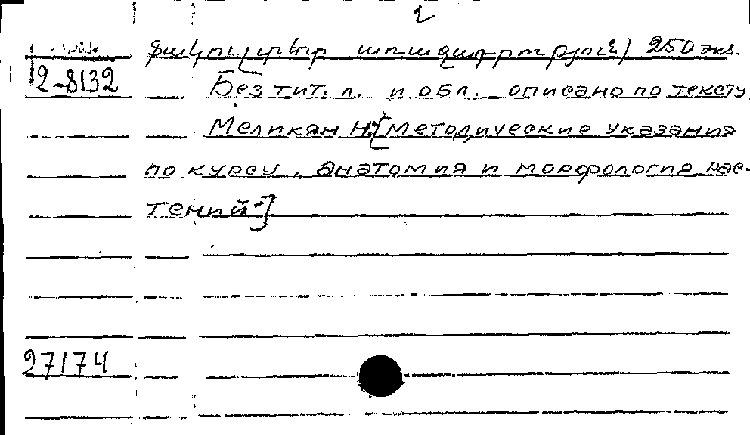 2
ֆակուլտետ առաջադրություն) 250 экз.
2-8132 Без тит. л. и обл. описано по тексту
Меликян Н. [Методические указания
по курсу „анатомия и морфология рас-
тений"]
27174